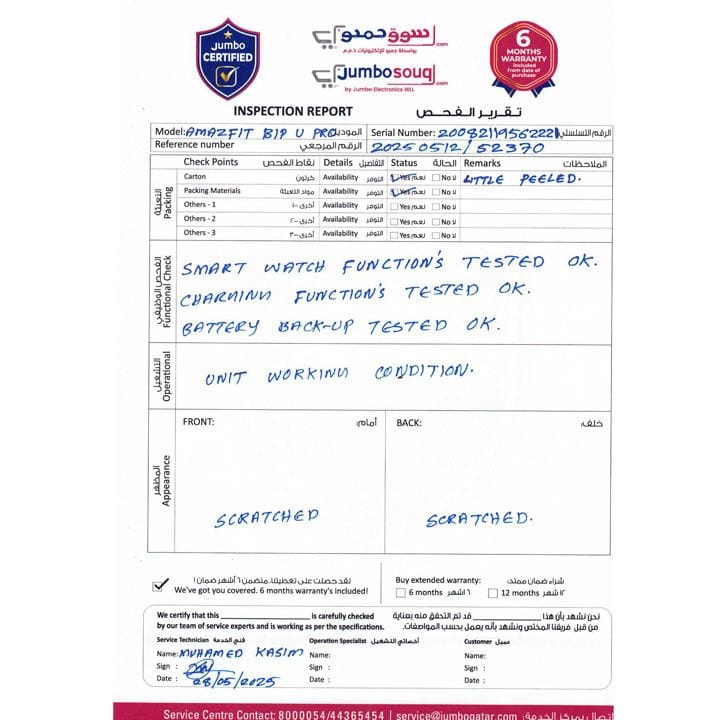 Jumbo
CERTIFIED
سوق جمبو.com
بواسطة جمبو للإلكترونيات ذ.م.م
jumbosouq.com
by Jumbo Electronics WLL
6
MONTHS
WARRANTY
included
from date of
purchase
INSPECTION REPORT تقرير الفحص
Model: AMAZFIT BIP U PRO الموديل Serial Number: 20082119562221 الرقم التسلسلي
Reference number الرقم المرجعي 20250512/52370
Check Points نقاط الفحص Details التفاصيل Status الحالة Remarks الملاحظات
التعبئة Packing
Carton كرتون Availability التوفر Yes نعم No لا LITTLE PEELED.
Packing Materials مواد التعبئة Availability التوفر Yes نعم No لا
Others - 1 أخرى -١ Availability التوفر Yes نعم No لا
Others - 2 أخرى -٢ Availability التوفر Yes نعم No لا
Others - 3 أخرى -٣ Availability التوفر Yes نعم No لا
الفحص الوظيفي Functional Check
SMART WATCH FUNCTION'S TESTED OK.
FUNCTION'S TESTED OK.
BATTERY BACK-UP TESTED OK.
التشغيل Operational
UNIT WORKING CONDITION.
المظهر Appearance
FRONT: أمام: BACK: خلف:
SCRATCHED SCRATCHED.
لقد حصلت على تغطيتنا. متضمن ٦ أشهر ضمان!
We've got you covered. 6 months warranty's included!
Buy extended warranty: شراء ضمان ممتد:
6 months ٦ اشهر 12 months ١٢ شهر
We certify that this ___ is carefully checked
by our team of service experts and is working as per the specifications.
نحن نشهد بأن هذا ___ قد تم التحقق منه بعناية
من قبل فريقنا المختص ونشهد بأنه يعمل بحسب المواصفات.
Service Technician فني الخدمة Operation Specialist أخصائي التشغيل Customer عميل
Name: MUHAMED KASIM Name: Name:
Sign : Sign : Sign :
Date : 28/05/2025 Date : Date :
Service Centre Contact: 8000054/44365454 | service@jumboqatar.com | اتصال بمركز الخدمة